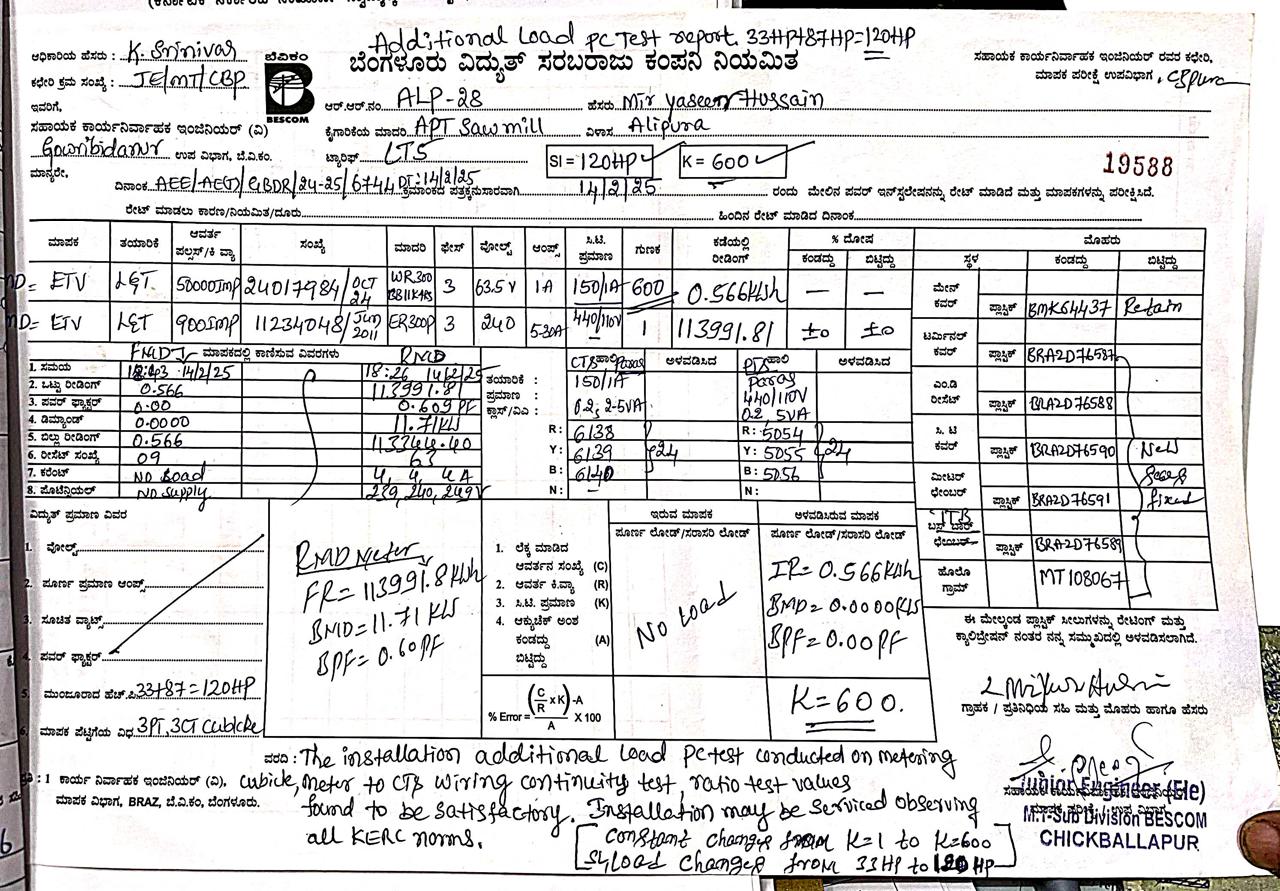 Additional Load PC Test report. 33HP+87HP=120HP
ಅಧಿಕಾರಿಯ ಹೆಸರು : K. Srinivas
ಬೆವಿಕಂ
BESCOM
ಬೆಂಗಳೂರು ವಿದ್ಯುತ್ ಸರಬರಾಜು ಕಂಪನಿ ನಿಯಮಿತ
ಸಹಾಯಕ ಕಾರ್ಯನಿರ್ವಾಹಕ ಇಂಜಿನಿಯರ್ ರವರ ಕಛೇರಿ,
ಮಾಪಕ ಪರೀಕ್ಷೆ ಉಪವಿಭಾಗ, CBpura
ಕಛೇರಿ ಕ್ರಮ ಸಂಖ್ಯೆ : JE/MT/CBP.
ಇವರಿಗೆ,
ಆರ್.ಆರ್.ನಂ. ALP-28 ಹೆಸರು Mir Yaseen Hussain
ಸಹಾಯಕ ಕಾರ್ಯನಿರ್ವಾಹಕ ಇಂಜಿನಿಯರ್ (ವಿ)
ಕೈಗಾರಿಕೆಯ ಮಾದರಿ APT Saw mill ವಿಳಾಸ Alipura
Gowribidanur ಉಪ ವಿಭಾಗ, ಬೆ.ವಿ.ಕಂ.
ಟ್ಯಾರಿಫ್ LT5 SI = 120HP K = 600
19588
ಮಾನ್ಯರೇ,
ದಿನಾಂಕ AEE/AE(T)/GBDR/24-25/6744 DT:14/2/25 ಕ್ರಮಾಂಕದ ಪತ್ರಕ್ಕನುಸಾರವಾಗಿ 14/2/25 ರಂದು ಮೇಲಿನ ಪವರ್ ಇನ್‌ಸ್ಟಲೇಷನನ್ನು ರೇಟ್ ಮಾಡಿದೆ ಮತ್ತು ಮಾಪಕಗಳನ್ನು ಪರೀಕ್ಷಿಸಿದೆ.
ರೇಟ್ ಮಾಡಲು ಕಾರಣ/ನಿಯಮಿತ/ದೂರು ಹಿಂದಿನ ರೇಟ್ ಮಾಡಿದ ದಿನಾಂಕ
ಮಾಪಕ ತಯಾರಿಕೆ ಆವರ್ತ ಪಲ್ಸಸ್/ಕಿ ವ್ಯಾ ಸಂಖ್ಯೆ ಮಾದರಿ ಫೇಸ್ ವೋಲ್ಟ್ ಆಂಪ್ಸ್ ಸಿ.ಟಿ. ಪ್ರಮಾಣ ಗುಣಕ ಕಡೆಯಲ್ಲಿ ರೀಡಿಂಗ್ % ದೋಷ ಕಂಡದ್ದು ಬಿಟ್ಟಿದ್ದು
ETV L&T 50000Imp 24017984/OCT 24 WR300 3 63.5V 1A 150/1A 600 0.566KWh — —
ETV L&T 900Imp 11234048/Jun 2011 ER300P 3 240 5-30A 440/110V 1 113991.81 ±0 ±0
ಮೊಹರು
ಸ್ಥಳ ಕಂಡದ್ದು ಬಿಟ್ಟಿದ್ದು
ಮೇನ್ ಕವರ್ ಪ್ಲಾಸ್ಟಿಕ್ BMK64437 Retain
ಟರ್ಮಿನಲ್ ಕವರ್ ಪ್ಲಾಸ್ಟಿಕ್ BRA2D76587
ಎಂ.ಡಿ ರೀಸೆಟ್ ಪ್ಲಾಸ್ಟಿಕ್ BRA2D76588
ಸಿ. ಟಿ ಕವರ್ ಪ್ಲಾಸ್ಟಿಕ್ BRA2D76590 New
ಮೀಟರ್ ಛೇಂಬರ್ ಪ್ಲಾಸ್ಟಿಕ್ BRA2D76591 fixed
TTB
ಬಸ್ ಬಾರ್ ಛೇಂಬರ್ ಪ್ಲಾಸ್ಟಿಕ್ BRA2D76589
ಹೊಲೊ ಗ್ರಾಮ್ MT108067
ಮಾಪಕದಲ್ಲಿ ಕಾಣಿಸುವ ವಿವರಗಳು RMD
1. ಸಮಯ 14/2/25 18:26 14/2/25
2. ಒಟ್ಟು ರೀಡಿಂಗ್ 0.566 113991.81
3. ಪವರ್ ಫ್ಯಾಕ್ಟರ್ 0.00 0.609 PF
4. ಡಿಮ್ಯಾಂಡ್ 0.0000 11.71KW
5. ಬಿಲ್ಲು ರೀಡಿಂಗ್ 0.566
6. ರೀಸೆಟ್ ಸಂಖ್ಯೆ 09 63
7. ಕರೆಂಟ್ NO Load 4, 4, 4 A
8. ಪೊಟೆನ್ಶಿಯಲ್ NO Supply 239, 240, 249V
CTS ಹಾಲಿ Paras ಅಳವಡಿಸಿದ PTS ಹಾಲಿ ಅಳವಡಿಸಿದ
ತಯಾರಿಕೆ : Paras
ಪ್ರಮಾಣ : 150/1A 440/110V
ಕ್ಲಾಸ್/ವಿಎ : 0.2, 2-5VA 0.2, 5VA
R: 6138 R: 5054
Y: 6139 24 Y: 5055 24
B: 6140 B: 5056
N: — N:
ವಿದ್ಯುತ್ ಪ್ರಮಾಣ ವಿವರ
1. ವೋಲ್ಟ್
2. ಪೂರ್ಣ ಪ್ರಮಾಣ ಆಂಪ್ಸ್
3. ಸೂಚಿತ ವ್ಯಾಟ್ಸ್
4. ಪವರ್ ಫ್ಯಾಕ್ಟರ್
5. ಮಂಜೂರಾದ ಹೆಚ್.ಪಿ. 33+87=120HP
6. ಮಾಪಕ ಪೆಟ್ಟಿಗೆಯ ವಿಧ 3PT, 3CT Cubicle
RMD Meter
FR= 113991.8 KWh
BMD= 11.71 KW
BPF= 0.60 PF
1. ಲೆಕ್ಕ ಮಾಡಿದ ಆವರ್ತನ ಸಂಖ್ಯೆ (C)
2. ಆವರ್ತ ಕಿ.ವ್ಯಾ (R)
3. ಸಿ.ಟಿ. ಪ್ರಮಾಣ (K)
4. ಆಕ್ಯುಚಿಕ್ ಅಂಶ ಕಂಡದ್ದು (A)
ಬಿಟ್ಟಿದ್ದು
% Error = (C/R x K) -A / A X 100
ಇರುವ ಮಾಪಕ
ಪೂರ್ಣ ಲೋಡ್/ಸರಾಸರಿ ಲೋಡ್
No Load
ಅಳವಡಿಸಿರುವ ಮಾಪಕ
ಪೂರ್ಣ ಲೋಡ್/ಸರಾಸರಿ ಲೋಡ್
IR= 0.566KWh
BMD= 0.0000KW
BPF= 0.00PF
K=600.
ಈ ಮೇಲ್ಕಂಡ ಪ್ಲಾಸ್ಟಿಕ್ ಸೀಲುಗಳನ್ನು ರೇಟಿಂಗ್ ಮತ್ತು
ಕ್ಯಾಲಿಬ್ರೇಷನ್ ನಂತರ ನನ್ನ ಸಮ್ಮುಖದಲ್ಲಿ ಅಳವಡಿಸಲಾಗಿದೆ.
ಗ್ರಾಹಕ / ಪ್ರತಿನಿಧಿಯ ಸಹಿ ಮತ್ತು ಮೊಹರು ಹಾಗೂ ಹೆಸರು
ವರದಿ : The installation additional load PC test conducted on metering
ಪ್ರತಿ : 1 ಕಾರ್ಯ ನಿರ್ವಾಹಕ ಇಂಜಿನಿಯರ್ (ವಿ), cubicle, Meter to CTS wiring continuity test, ratio test values
ಮಾಪಕ ವಿಭಾಗ, BRAZ, ಬೆ.ವಿ.ಕಂ, ಬೆಂಗಳೂರು.
found to be satisfactory. Installation may be Serviced observing
all KERC norms.
constant changes from K=1 to K=600
Load changes from 33HP to 120HP
Junior Engineer (Ele)
M.T-Sub Division BESCOM
CHICKBALLAPUR